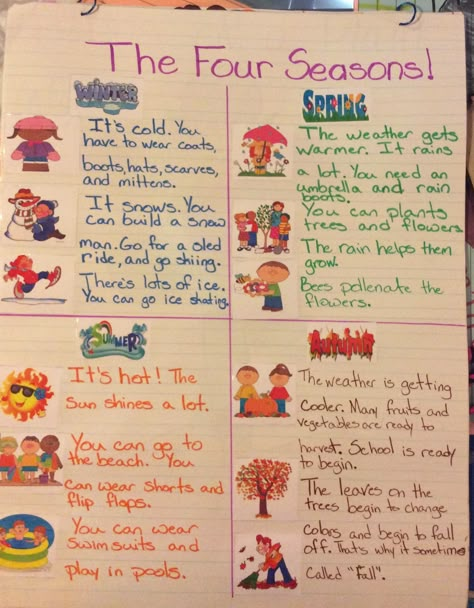 The Four Seasons!
WINTER
It's cold. You
have to wear coats,
boots, hats, scarves,
and mittens.
It snows. You
can build a snow
man. Go for a sled
ride, and go skiing.
There's lots of ice.
You can go ice skating.
SPRING
The weather gets
warmer. It rains
a lot. You need an
umbrella and rain
boots.
You can plants
trees and flowers
The rain helps them
grow.
Bees pollenate the
flowers.
SUMMER
It's hot! The
Sun shines a lot.
You can go to
the beach. You
can wear shorts and
flip flops.
You can wear
swimsuits and
play in pools.
Autumn
The weather is getting
cooler. Many fruits and
vegetables are ready to
harvest. School is ready
to begin.
The leaves on the
trees begin to change
colors and begin to fall
off. That's why it sometime
called "Fall".